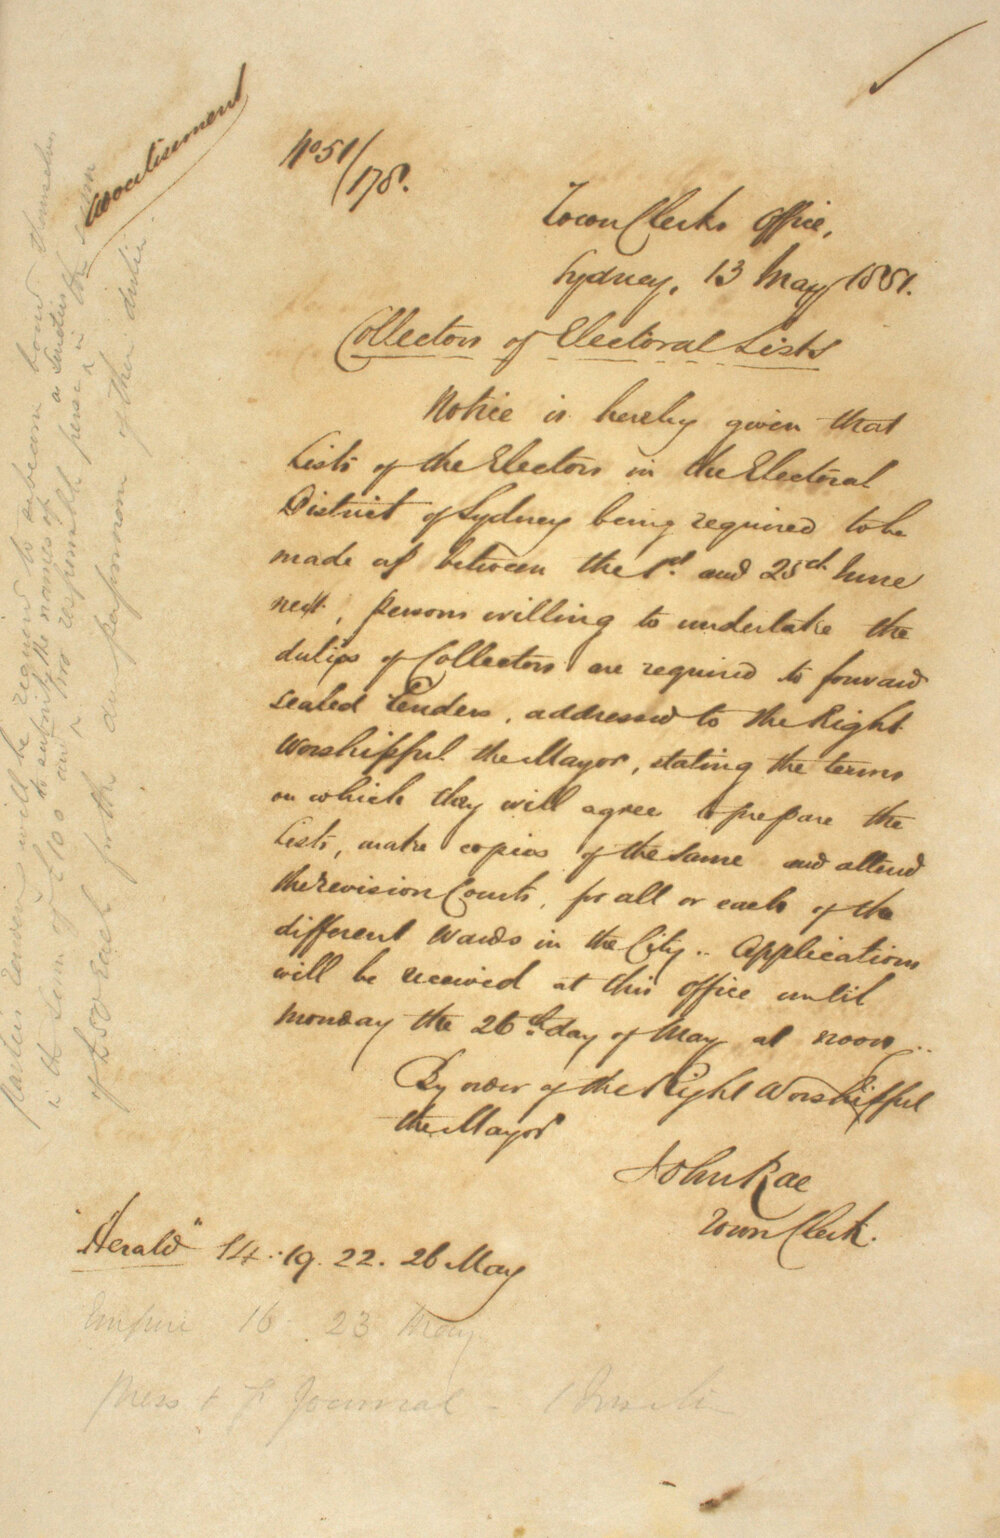 Advertisement
No 51/178.
Town Clerks Office,
Sydney, 13 May 1851.
Collectors of Electoral Lists
Notice is hereby given that
Lists of the Electors in the Electoral
District of Sydney being required to be
made out between the 1st and 25th June
next, persons willing to undertake the
duties of Collectors are required to forward
sealed Tenders, addressed to the Right
Worshipful the Mayor, stating the terms
on which they will agree to prepare the
Lists, make copies of the same and attend
the revision Courts, for all or each of the
different Wards in the City.. Applications
will be received at this office until
Monday the 26th day of May at noon..
By order of the Right Worshipful
the Mayor
John Rae
Town Clerk.
"Herald" 14. 19. 22. 26 May
Empire 16 23 May
Press & Journal
Parties tendering will be required to bind themselves
in the sum of £100 and to submit the names of two responsible persons as Sureties in the sum
of £50 each for the due performance of their duties